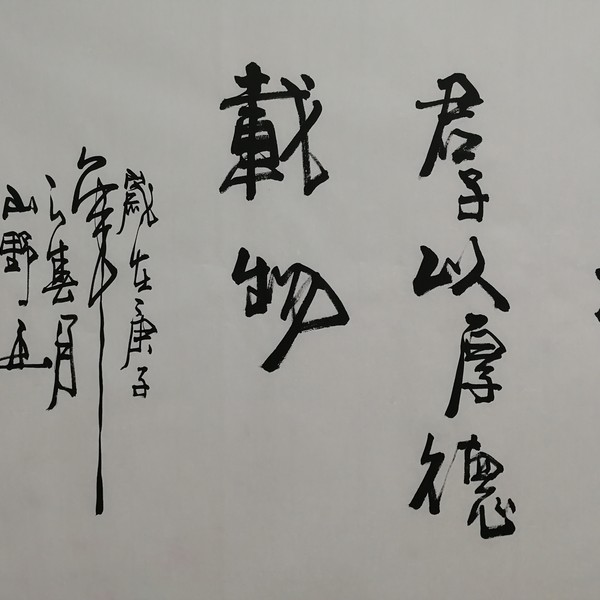 君子以厚德
載物
歲在庚子
年
春月
山野